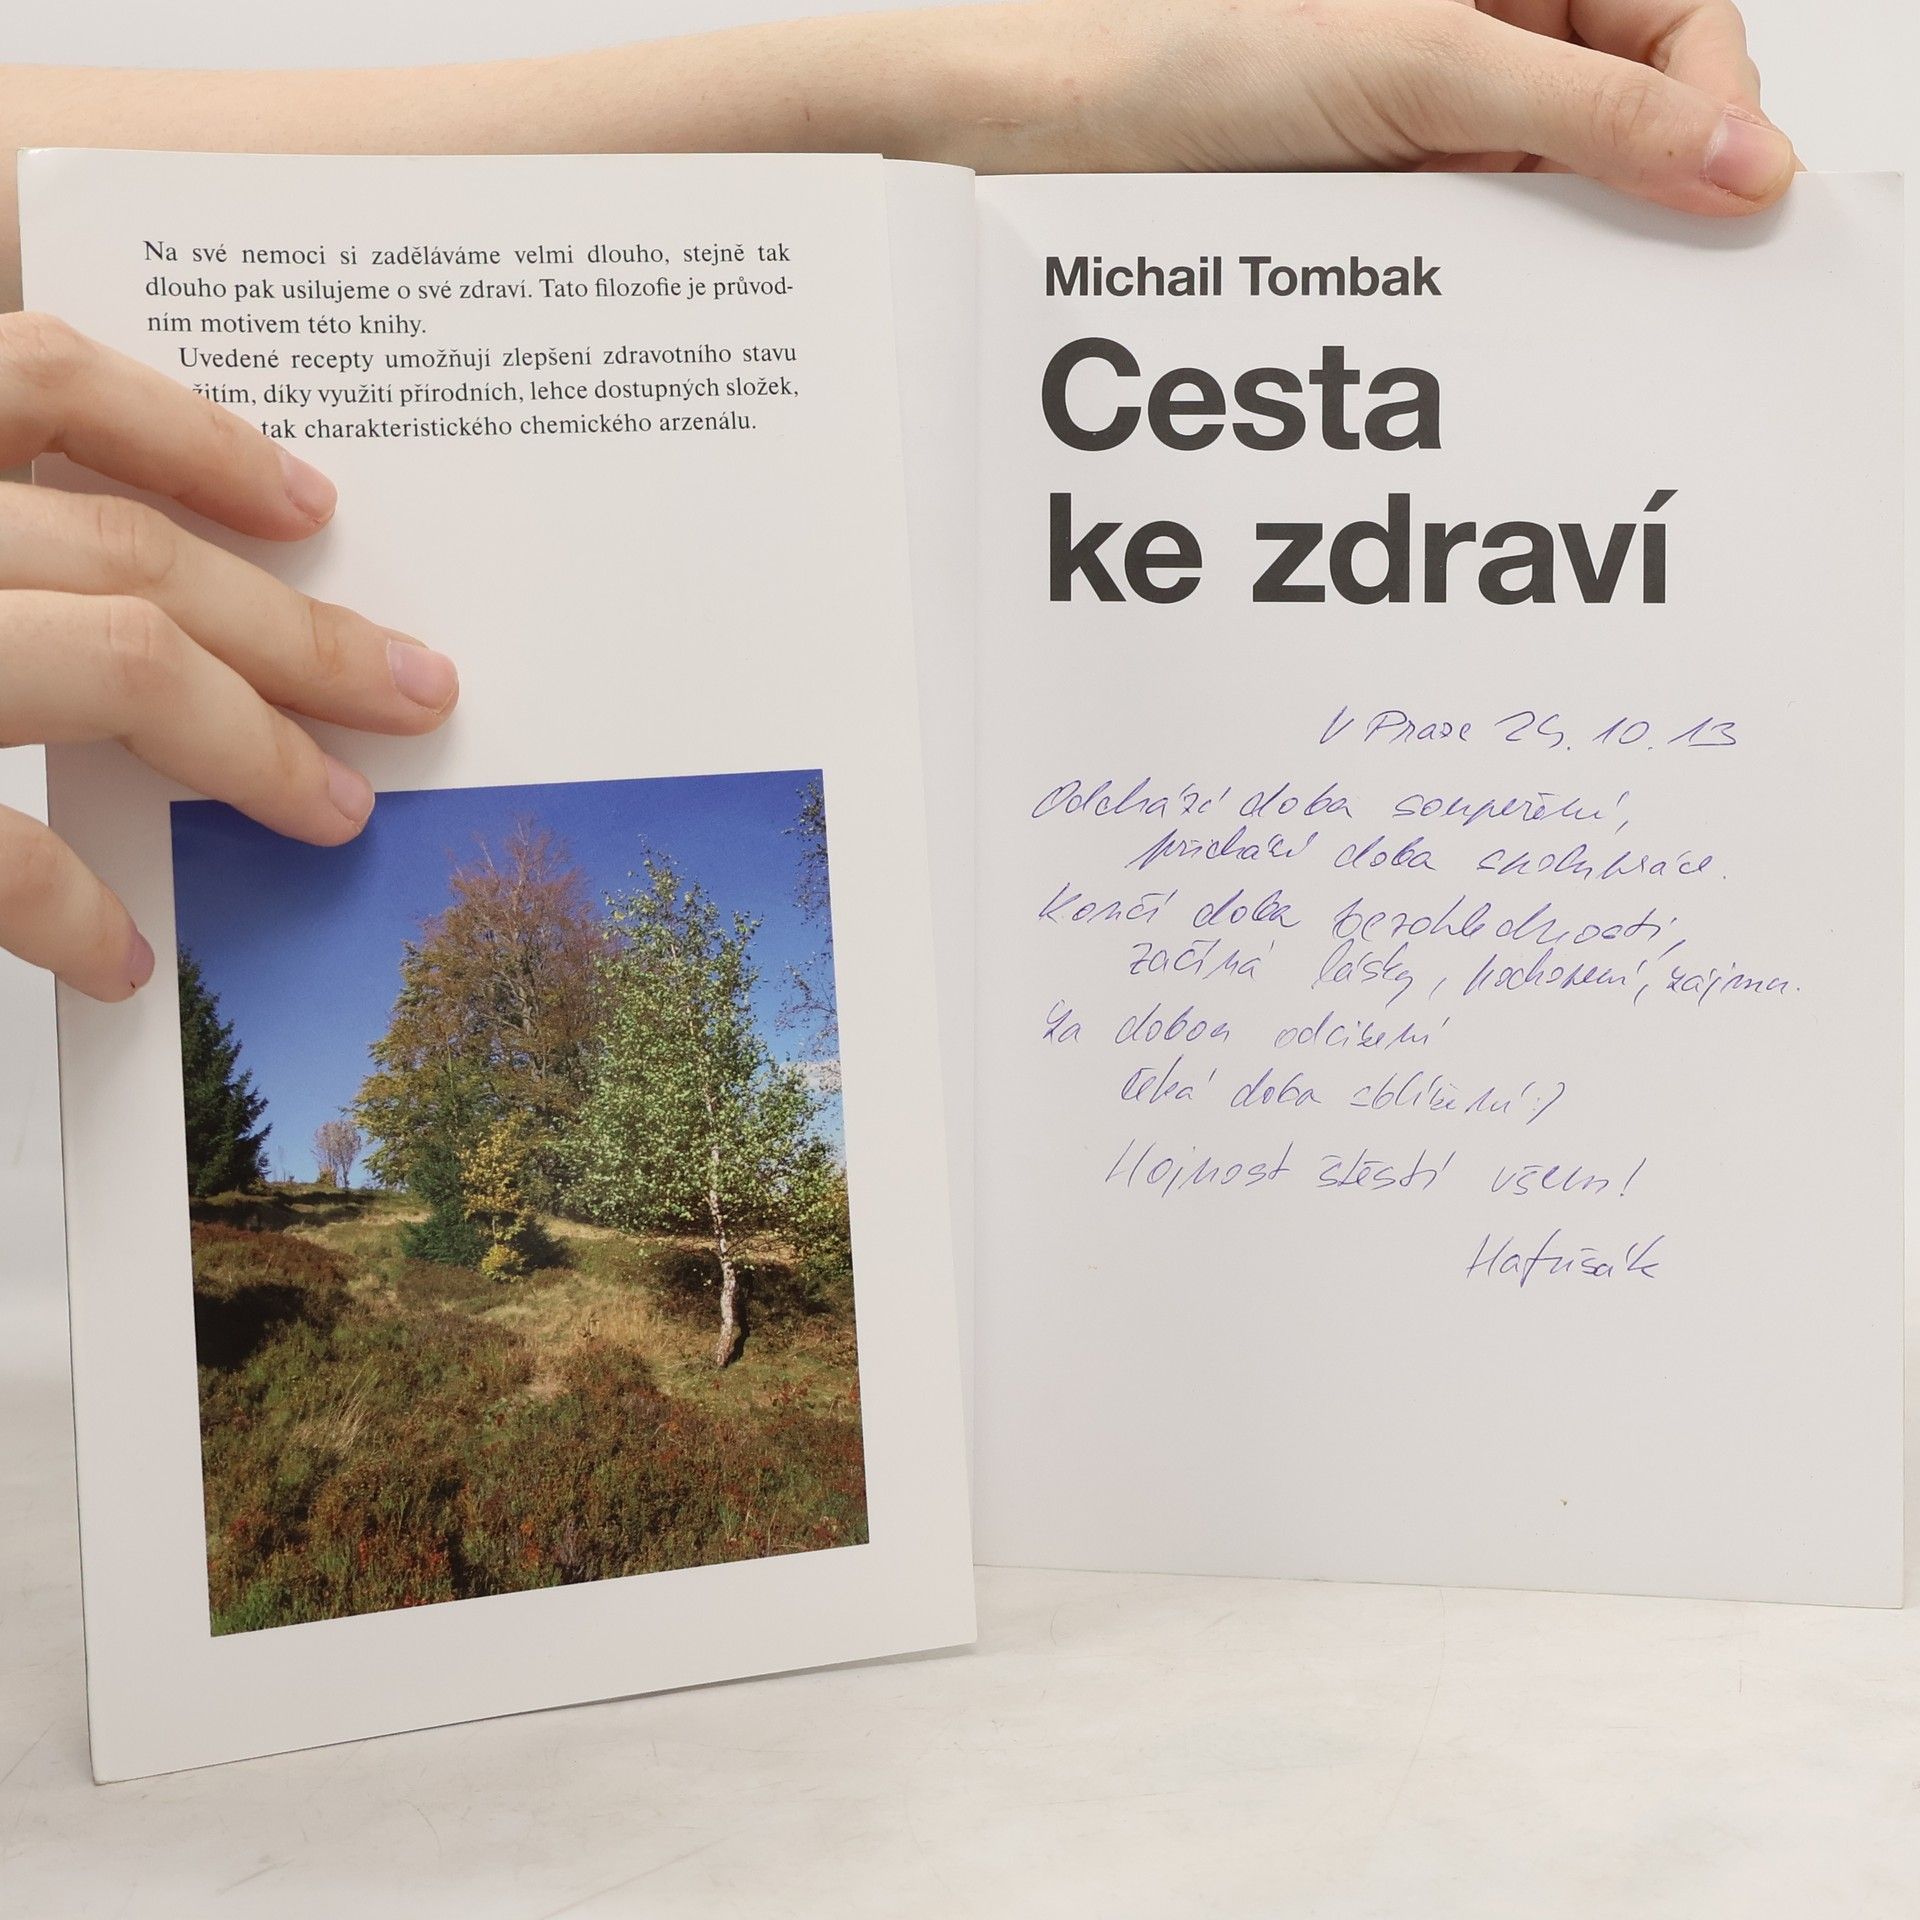 Na své nemoci si zaděláváme velmi dlouho, stejně tak
dlouho pak usilujeme o své zdraví. Tato filozofie je průvod-
ním motivem této knihy.
Uvedené recepty umožňují zlepšení zdravotního stavu
žitím, díky využití přírodních, lehce dostupných složek,
tak charakteristického chemického arzenálu.
Michail Tombak
Cesta
ke zdraví
V Praze 10.13
Odchází doba soupeření,
přichází doba spolupráce.
Končí doba bezohlednosti,
začíná lásky, pochopení, zájmu.
Za dobou odcizení
čeká doba sblížení :)
Hojnost štěstí všem!